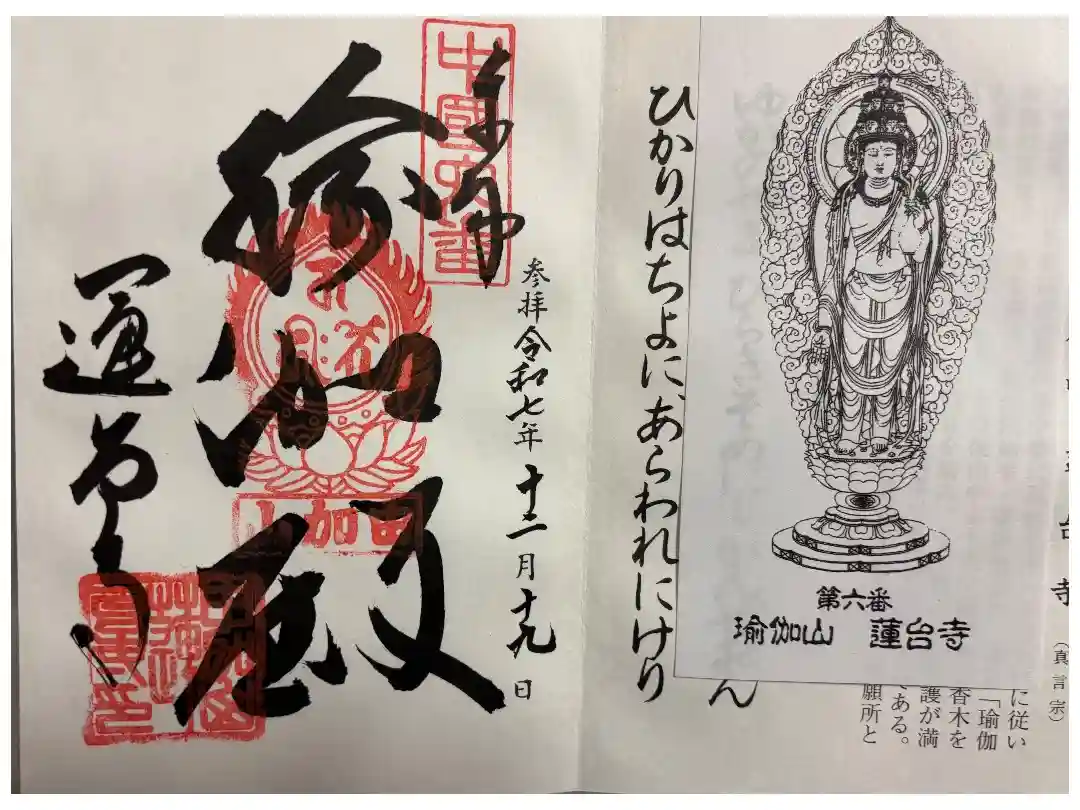 台寺（真言宗）
に従い
「瑜伽
香木を
護が満
ある。
願所と
第六番
瑜伽山　蓮台寺
ん
ひかりはちよに、あらわれにけり
参拝令和七年十二月十九日
中國六番
奉拝
瑜伽殿
由加山
蓮台寺